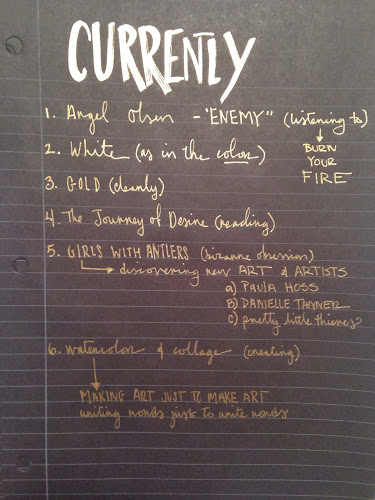 CURRENTLY
1. Angel Olsen - "ENEMY" (listening to)
BURN
YOUR
FIRE
2. White (as in the color)
3. GOLD (clearly)
4. The Journey of Desire (reading)
5. GIRLS WITH ANTLERS (bizarre obsession)
discovering new ART & ARTISTS
a) PAULA HOSS
B) DANIELLE TANNER
C) pretty little thieves?
6. watercolor & collage (creating)
MAKING ART JUST TO MAKE ART
writing words just to write words